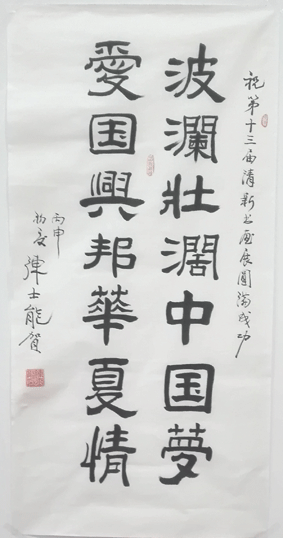 祝第十三届清新书画展圆满成功
波瀾壯濶中国夢
愛国興邦華夏情
丙申
初夏陳士能賀